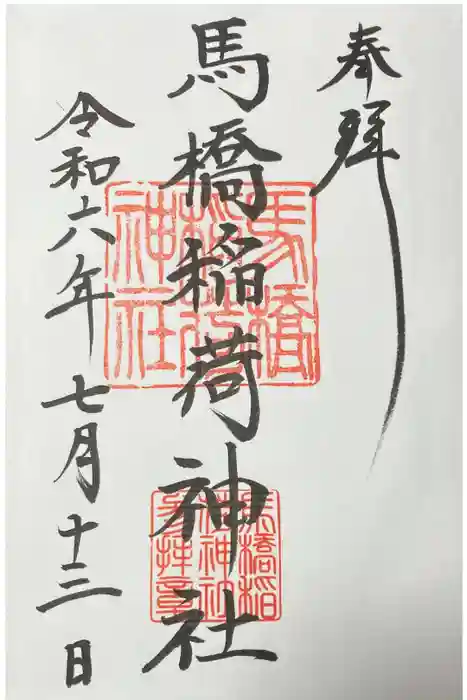 奉拝
馬橋稲荷神社
令和六年七月十三日
馬橋
稲荷
神社
馬橋稲
荷神社
参拝章